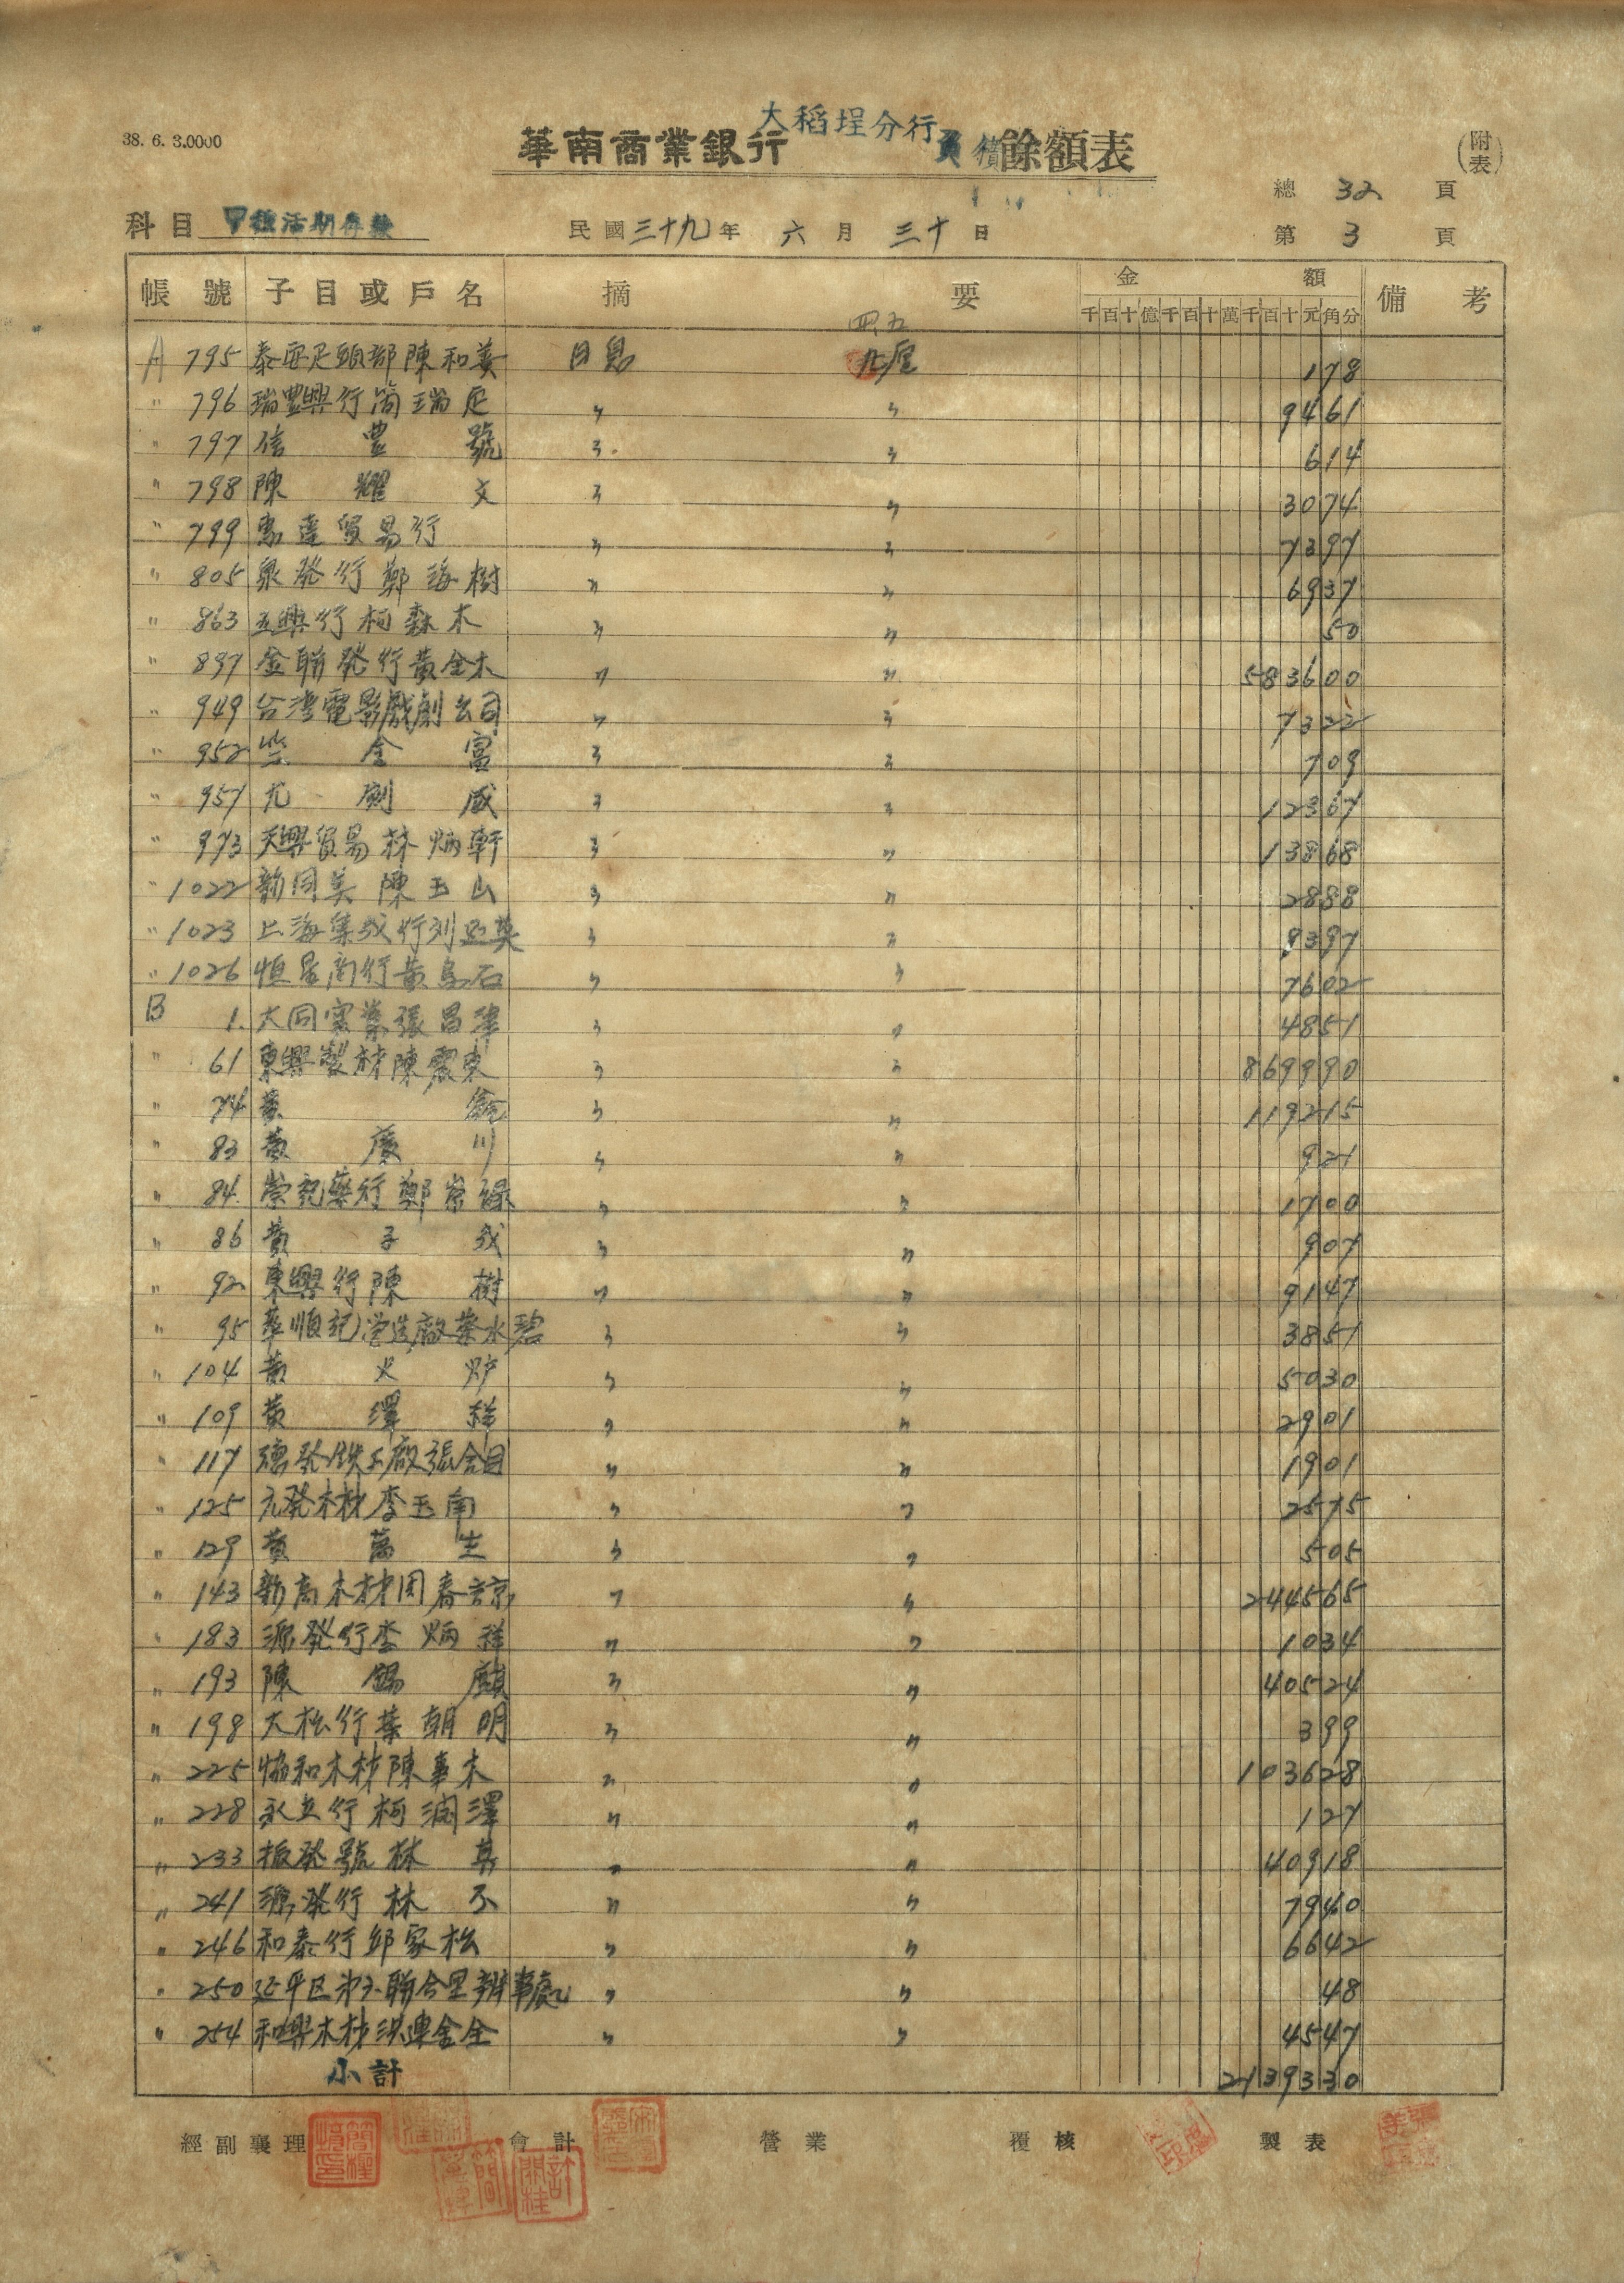 38. 6. 3.0000
華南商業銀行 大稻埕分行 負債 餘額表
(附表)
總 32 頁
科目 甲種活期存款 民國三十九年 六月 三十日 第 3 頁
帳號 子目或戶名 摘要 金額 備考
千百十億千百十萬千百十元角分
四五
A 795 陳和 日息 九厘 178
" 796 瑞豐興行簡瑞 〃 〃 9461
" 797 信豐號 〃 〃 614
" 798 陳耀文 〃 〃 3074
" 799 惠達貿易行 〃 〃 7397
" 805 泉發行鄭海樹 〃 〃 6937
" 863 五興行柯森木 〃 〃 50
" 897 金聯發行黃金木 〃 〃 583600
" 949 台湾電影戲劇公司 〃 〃 7322
" 952 金富 〃 〃 709
" 957 尤劍成 〃 〃 12367
" 973 天興貿易林炳軒 〃 〃 13868
" 1022 新同美陳玉山 〃 〃 2888
" 1023 上海集成行刘 英 〃 〃 8397
" 1026 恒昌商行黃烏石 〃 〃 7602
B 1. 大同實業張昌津 〃 〃 4851
" 61 東興製材陳震東 〃 〃 869990
" 74 黃 〃 〃 119215
" 83 黃慶川 〃 〃 921
" 84. 榮記藥行鄭榮祿 〃 〃 1700
" 86 黃子成 〃 〃 907
" 92 東興行陳樹 〃 〃 9147
" 95 葉順記營造廠葉水碧 〃 〃 3851
" 104 黃火炉 〃 〃 5030
" 109 黃澤祥 〃 〃 2901
" 117 德發鉄工廠張合 〃 〃 1901
" 125 元発木材李玉南 〃 〃 2575
" 129 黃萬生 〃 〃 505
" 143 新高木材周春 〃 〃 244565
" 183 源発行李炳祥 〃 〃 1034
" 193 陳錫麒 〃 〃 40524
" 198 大松行葉朝明 〃 〃 399
" 225 協和木材陳事木 〃 〃 103628
" 228 永立行柯潤澤 〃 〃 127
" 233 振発號林其 〃 〃 40918
" 241 源発行林 〃 〃 7940
" 246 和泰行邱家松 〃 〃 6642
" 250 延平区 聯合里辦事處 〃 〃 48
" 254 和興木材洪連金全 〃 〃 4547
小計 2139330
經副襄理 會計 營業 覆核 製表